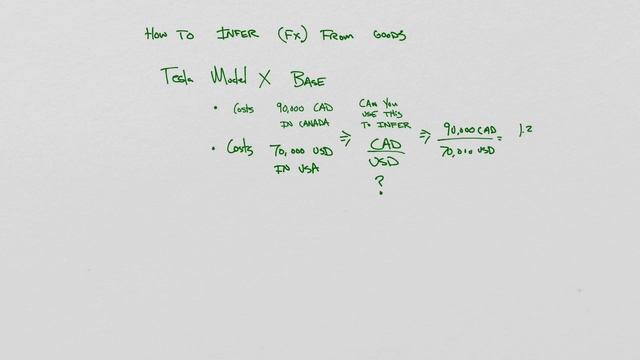 How To INFER (Fx) From GOODS
Tesla Model X BASE
• Costs 90,000 CAD IN CANADA
• Costs 70,000 USD IN USA
⇒
CAN YOU USE THIS TO INFER
CAD
USD
?
⇒
90,000 CAD
70,010 USD
= 1.2